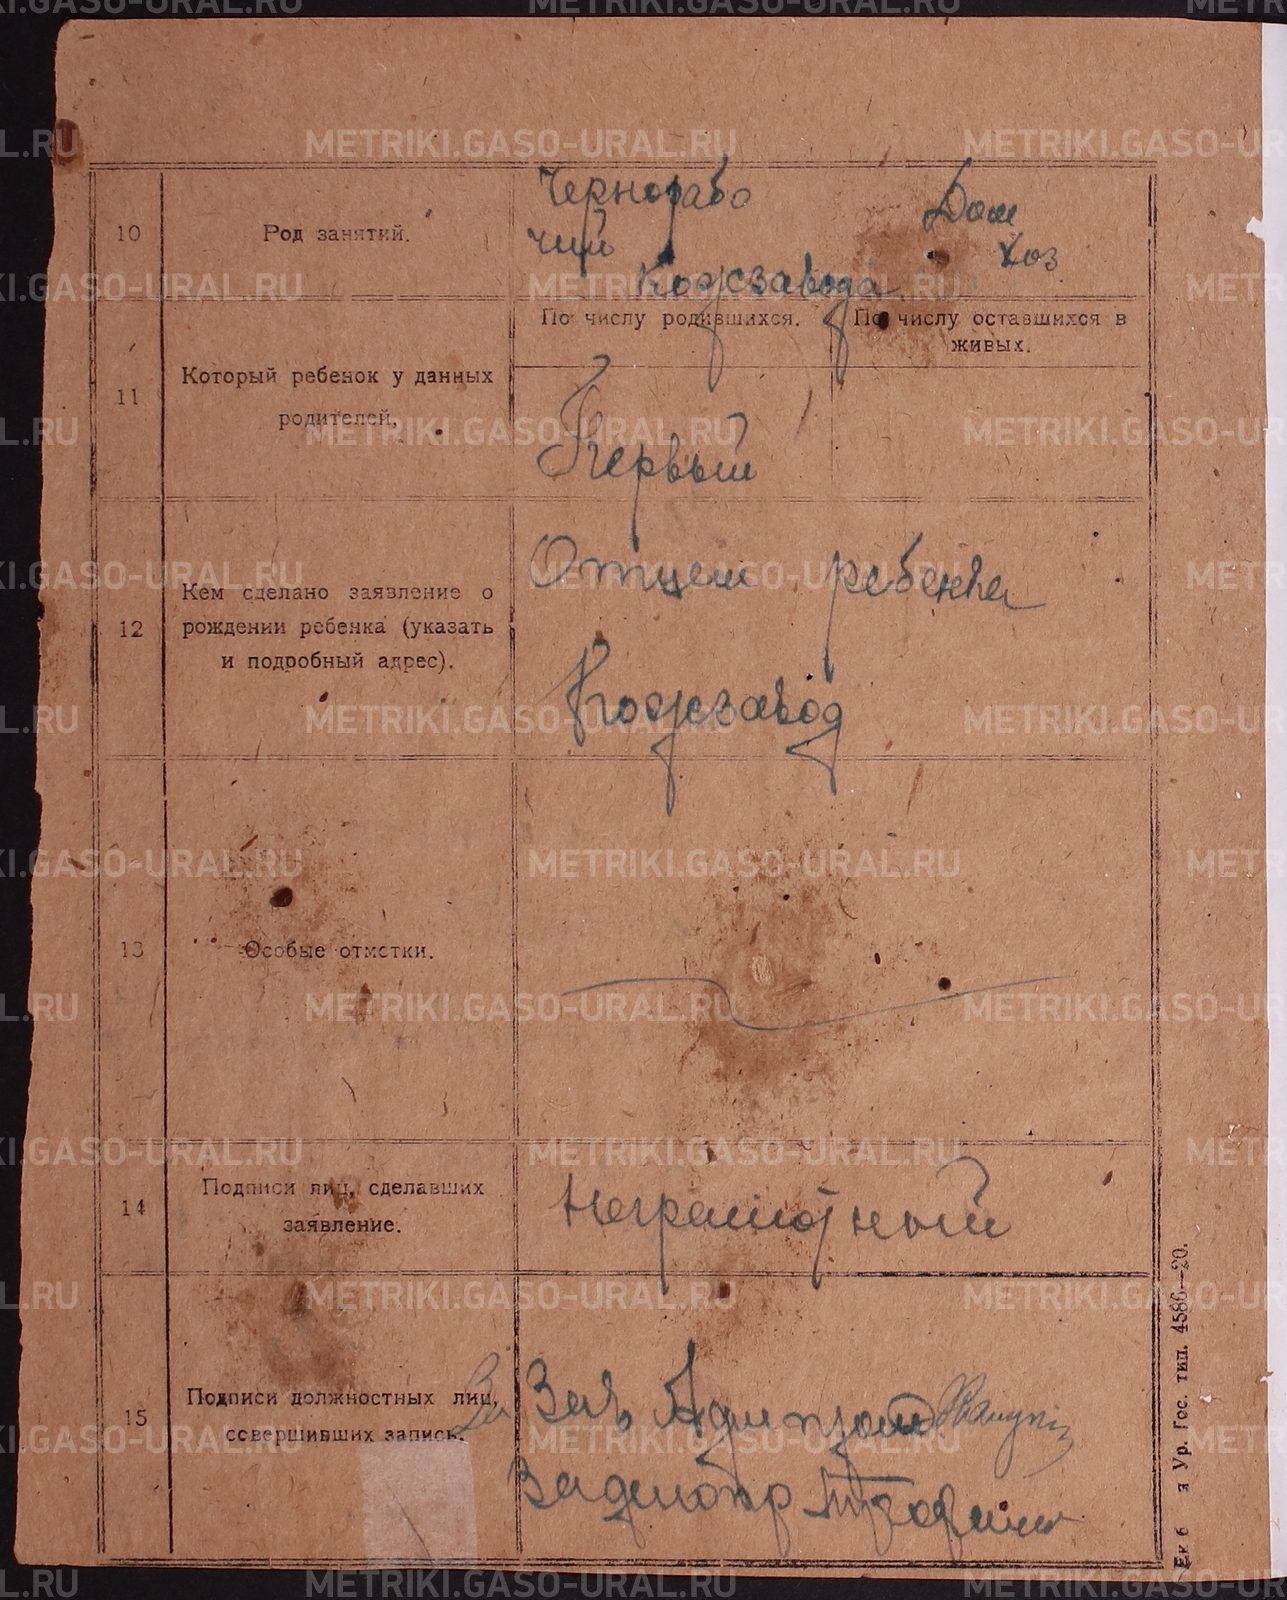 10
Род занятий.
Чернорабо
чий
Кожзавода.
Дом
Хоз
11
Который ребенок у данных
родителей.
По числу родившихся.
По числу оставшихся в
живых.
Первый
12
Кем сделано заявление о
рождении ребенка (указать
и подробный адрес).
Отцем ребенка
Кожзавод
13
Особые отметки.
14
Подписи лиц, сделавших
заявление.
Неграмотный
15
Подписи должностных лиц,
совершивших запись.
За Зав
4586—20.
Ур. Гос. тип.
METRIKI.GASO-URAL.RU